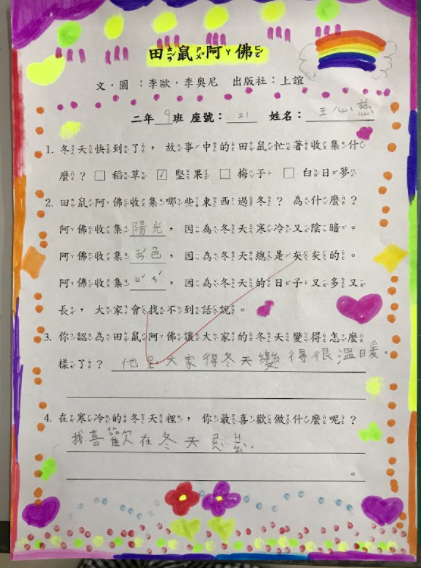 田鼠阿佛
文‧圖：李歐‧李奧尼 出版社：上誼
二年 9 班 座號：21 姓名：王心
1. 冬天快到了，故事中的田鼠忙著收集什
麼？ □ 稻草 ☑ 堅果 □ 梅子 □ 白日夢
2. 田鼠阿佛收集哪些東西過冬？為什麼？
阿佛收集 陽光，因為冬天寒冷又陰暗。
阿佛收集 顏色，因為冬天總是灰灰的。
阿佛收集，因為冬天的日子又多又
長，大家會找不到話說。
3. 你認為田鼠阿佛讓大家的冬天變得怎麼
樣了？ 他 大家得冬天變得很溫暖。
4. 在寒冷的冬天裡，你最喜歡做什麼呢？
我喜歡在冬天
。